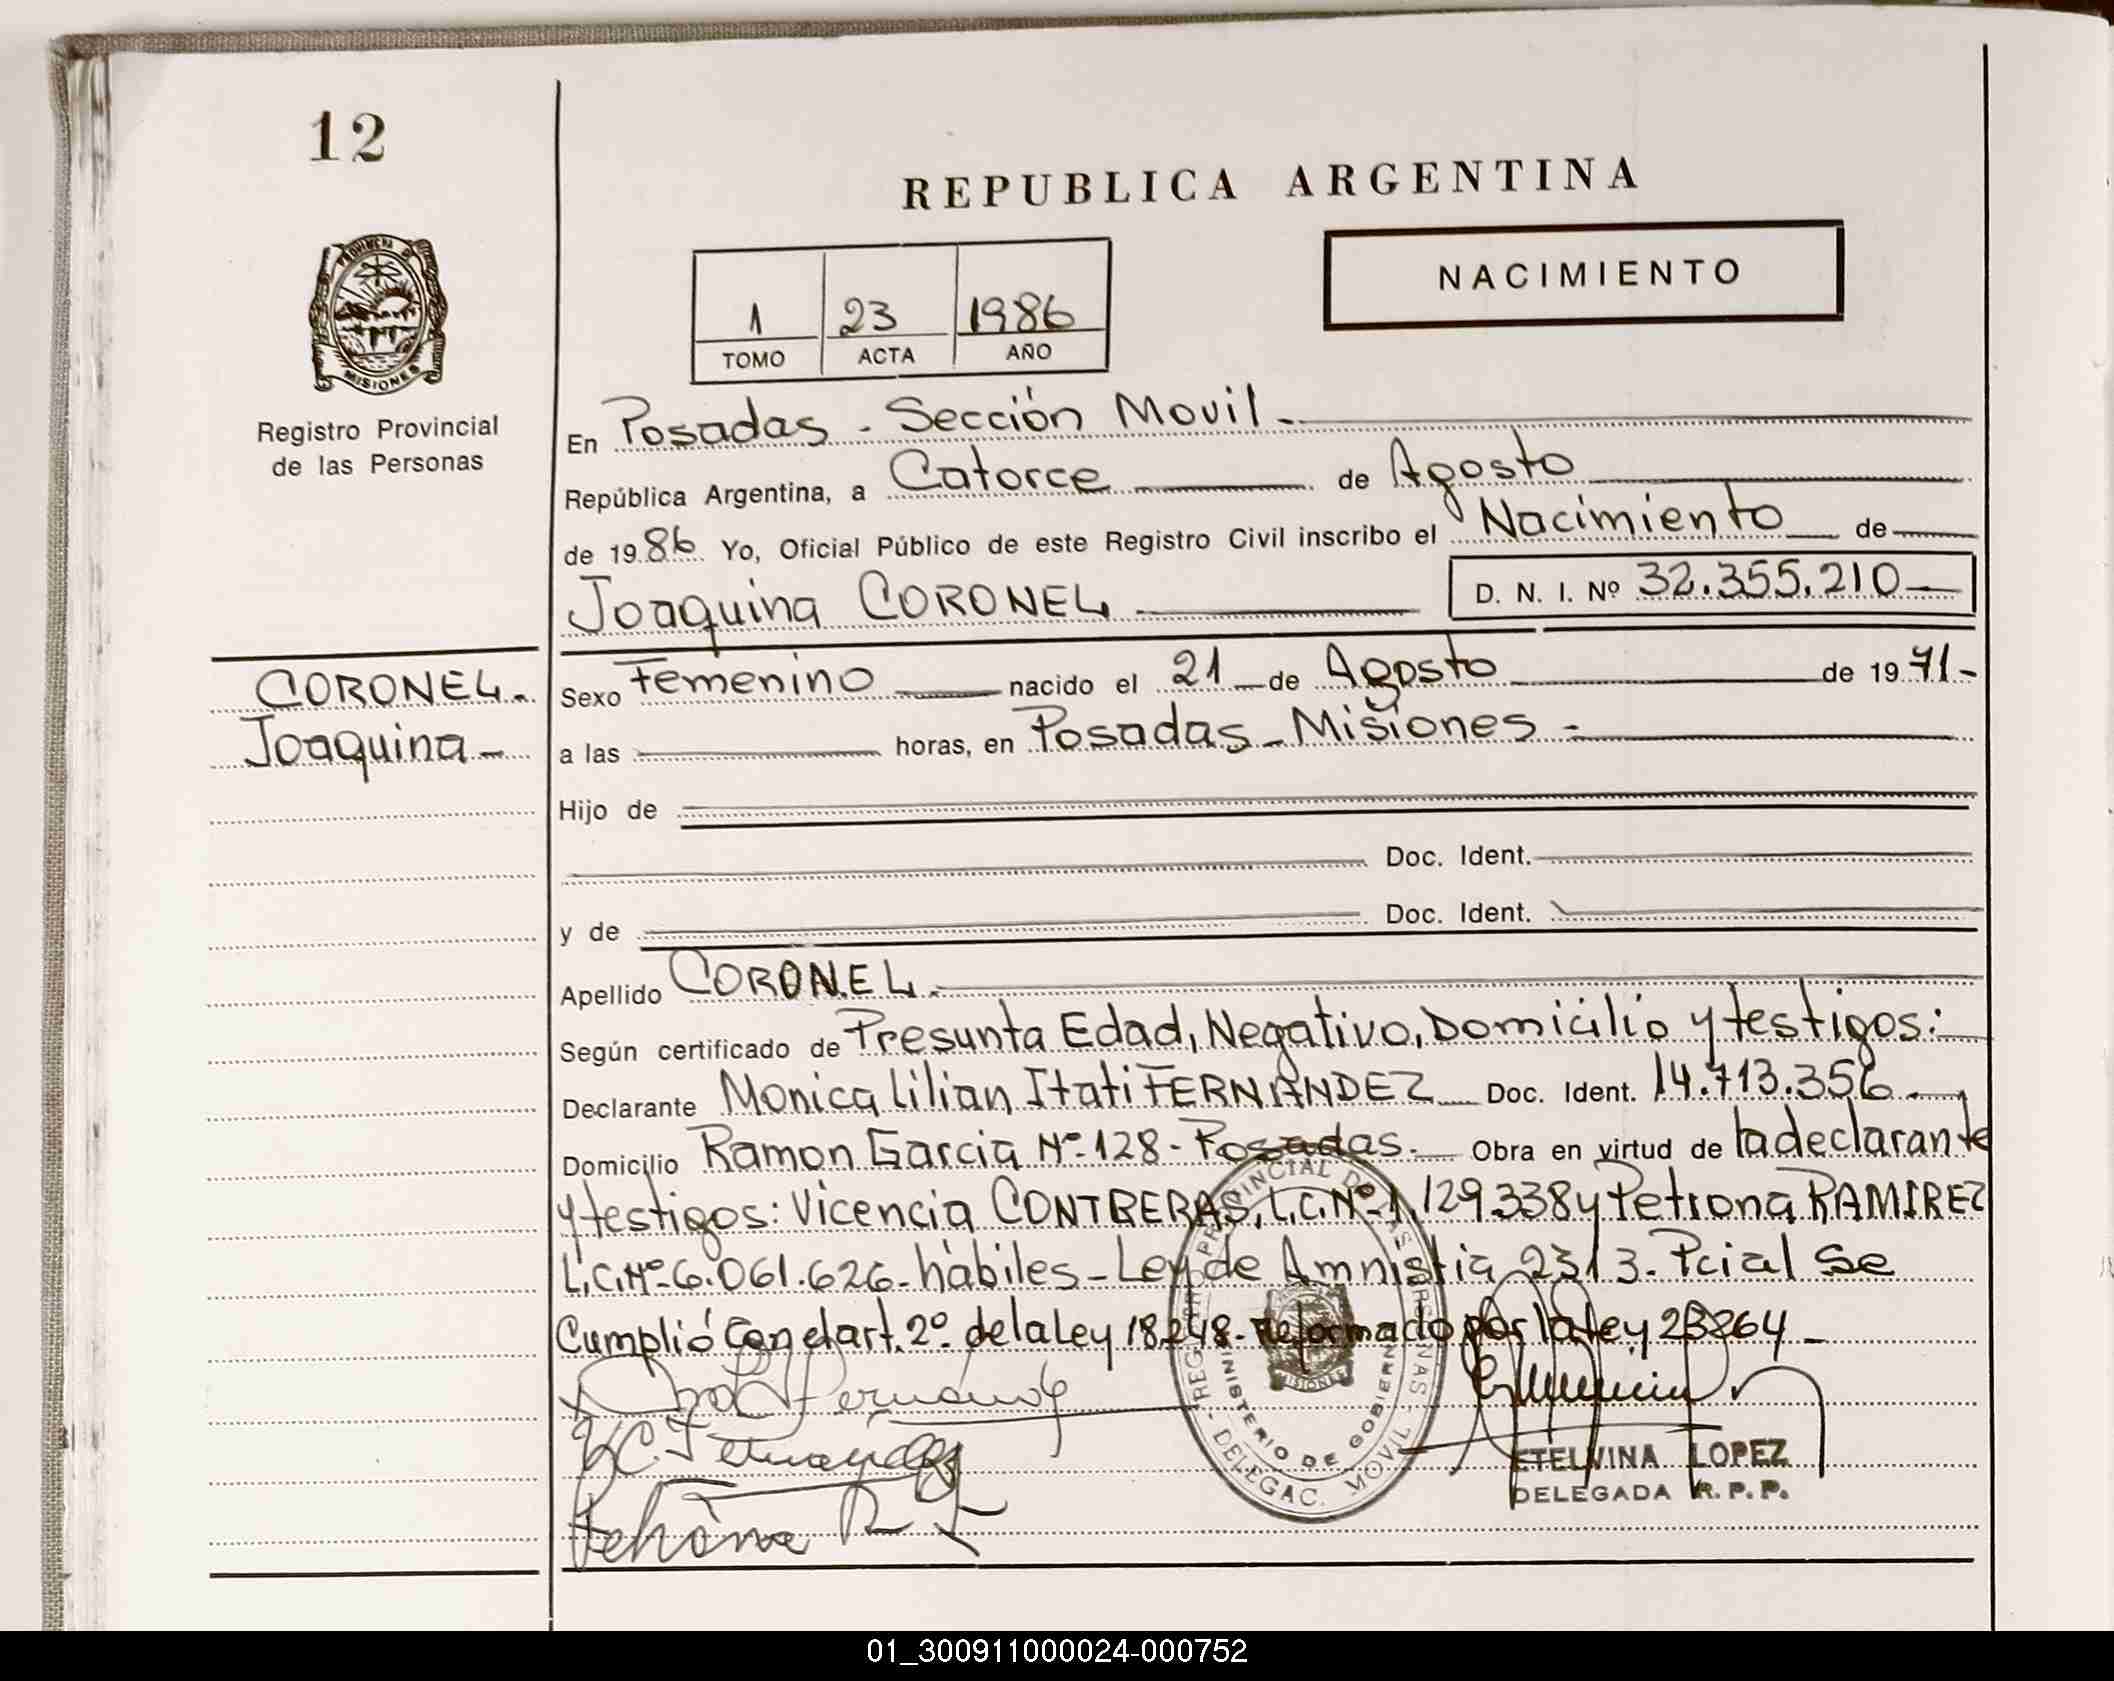 12
REPUBLICA ARGENTINA
1 23 1986
TOMO ACTA AÑO
NACIMIENTO
PROVINCIA DE
MISIONES
Registro Provincial
de las Personas
En Posadas - Sección Movil -
República Argentina, a Catorce de Agosto
de 1986 Yo, Oficial Público de este Registro Civil inscribo el Nacimiento de
Joaquina CORONEL D. N. I. Nº 32.355.210
CORONEL -
Joaquina -
Sexo Femenino nacido el 21 de Agosto de 1971 -
a las horas, en Posadas - Misiones -
Hijo de
Doc. Ident.
y de Doc. Ident.
Apellido CORONEL.
Según certificado de Presunta Edad, Negativo, Domicilio y testigos:
Declarante Monica Lilian Itati FERNANDEZ Doc. Ident. 14.713.356
Domicilio Ramon Garcia Nº 128 - Posadas. Obra en virtud de la declarante
y testigos: Vicencia CONTRERAS, L.C. Nº 1.129.338 y Petrona RAMIREZ
L.C. Nº 6.061.626 - hábiles - Ley de Amnistia 2313 - Pcial Se
Cumplió con el art. 2º de la Ley 18.248 - Reformado por la ley 23264 -
REG. PROVINCIAL DE LAS PERSONAS - DELEGAC. MOVIL -
MINISTERIO DE GOBIERNO
MISIONES
ETELVINA LOPEZ
DELEGADA R. P. P.
01_300911000024-000752